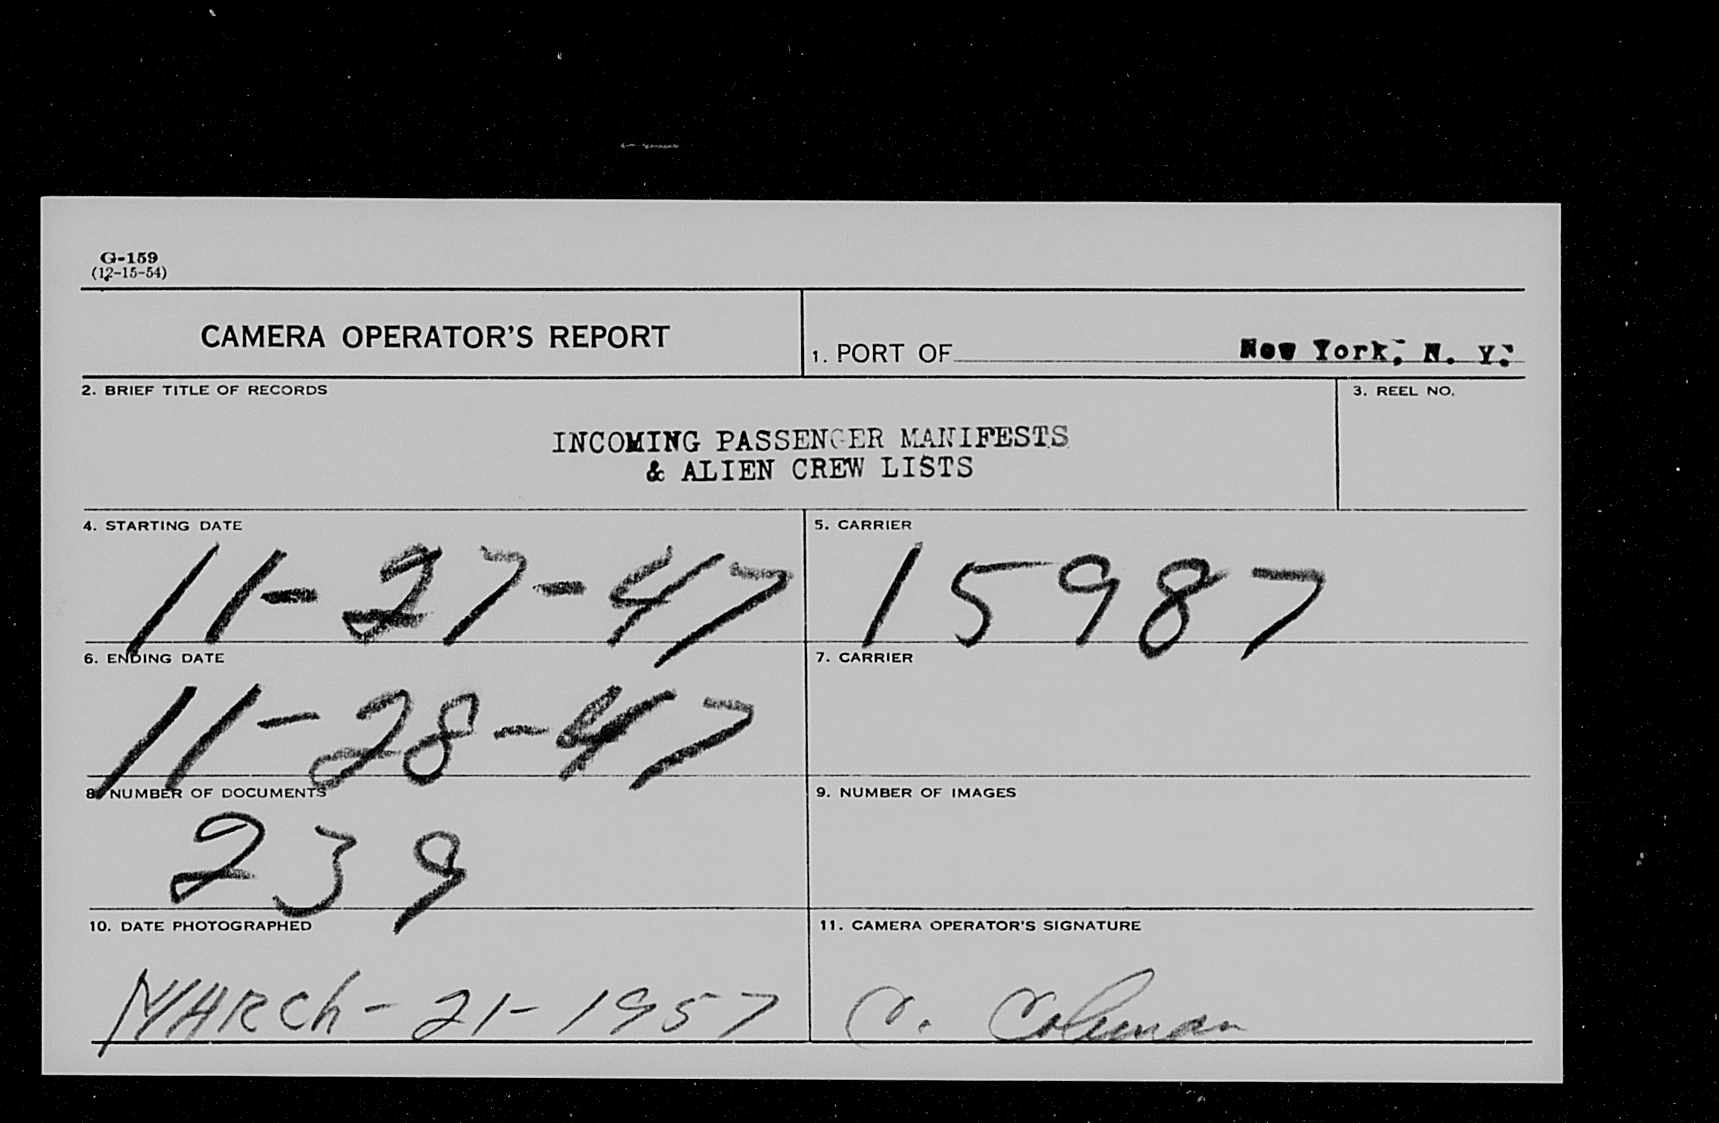 G-159
(12-15-54)
CAMERA OPERATOR'S REPORT
1. PORT OF New York, N. Y.
2. BRIEF TITLE OF RECORDS
3. REEL NO.
INCOMING PASSENGER MANIFESTS
& ALIEN CREW LISTS
4. STARTING DATE
11-27-47
5. CARRIER
15987
6. ENDING DATE
11-28-47
7. CARRIER
8. NUMBER OF DOCUMENTS
239
9. NUMBER OF IMAGES
10. DATE PHOTOGRAPHED
MARCh-21-1957
11. CAMERA OPERATOR'S SIGNATURE
C. Coleman